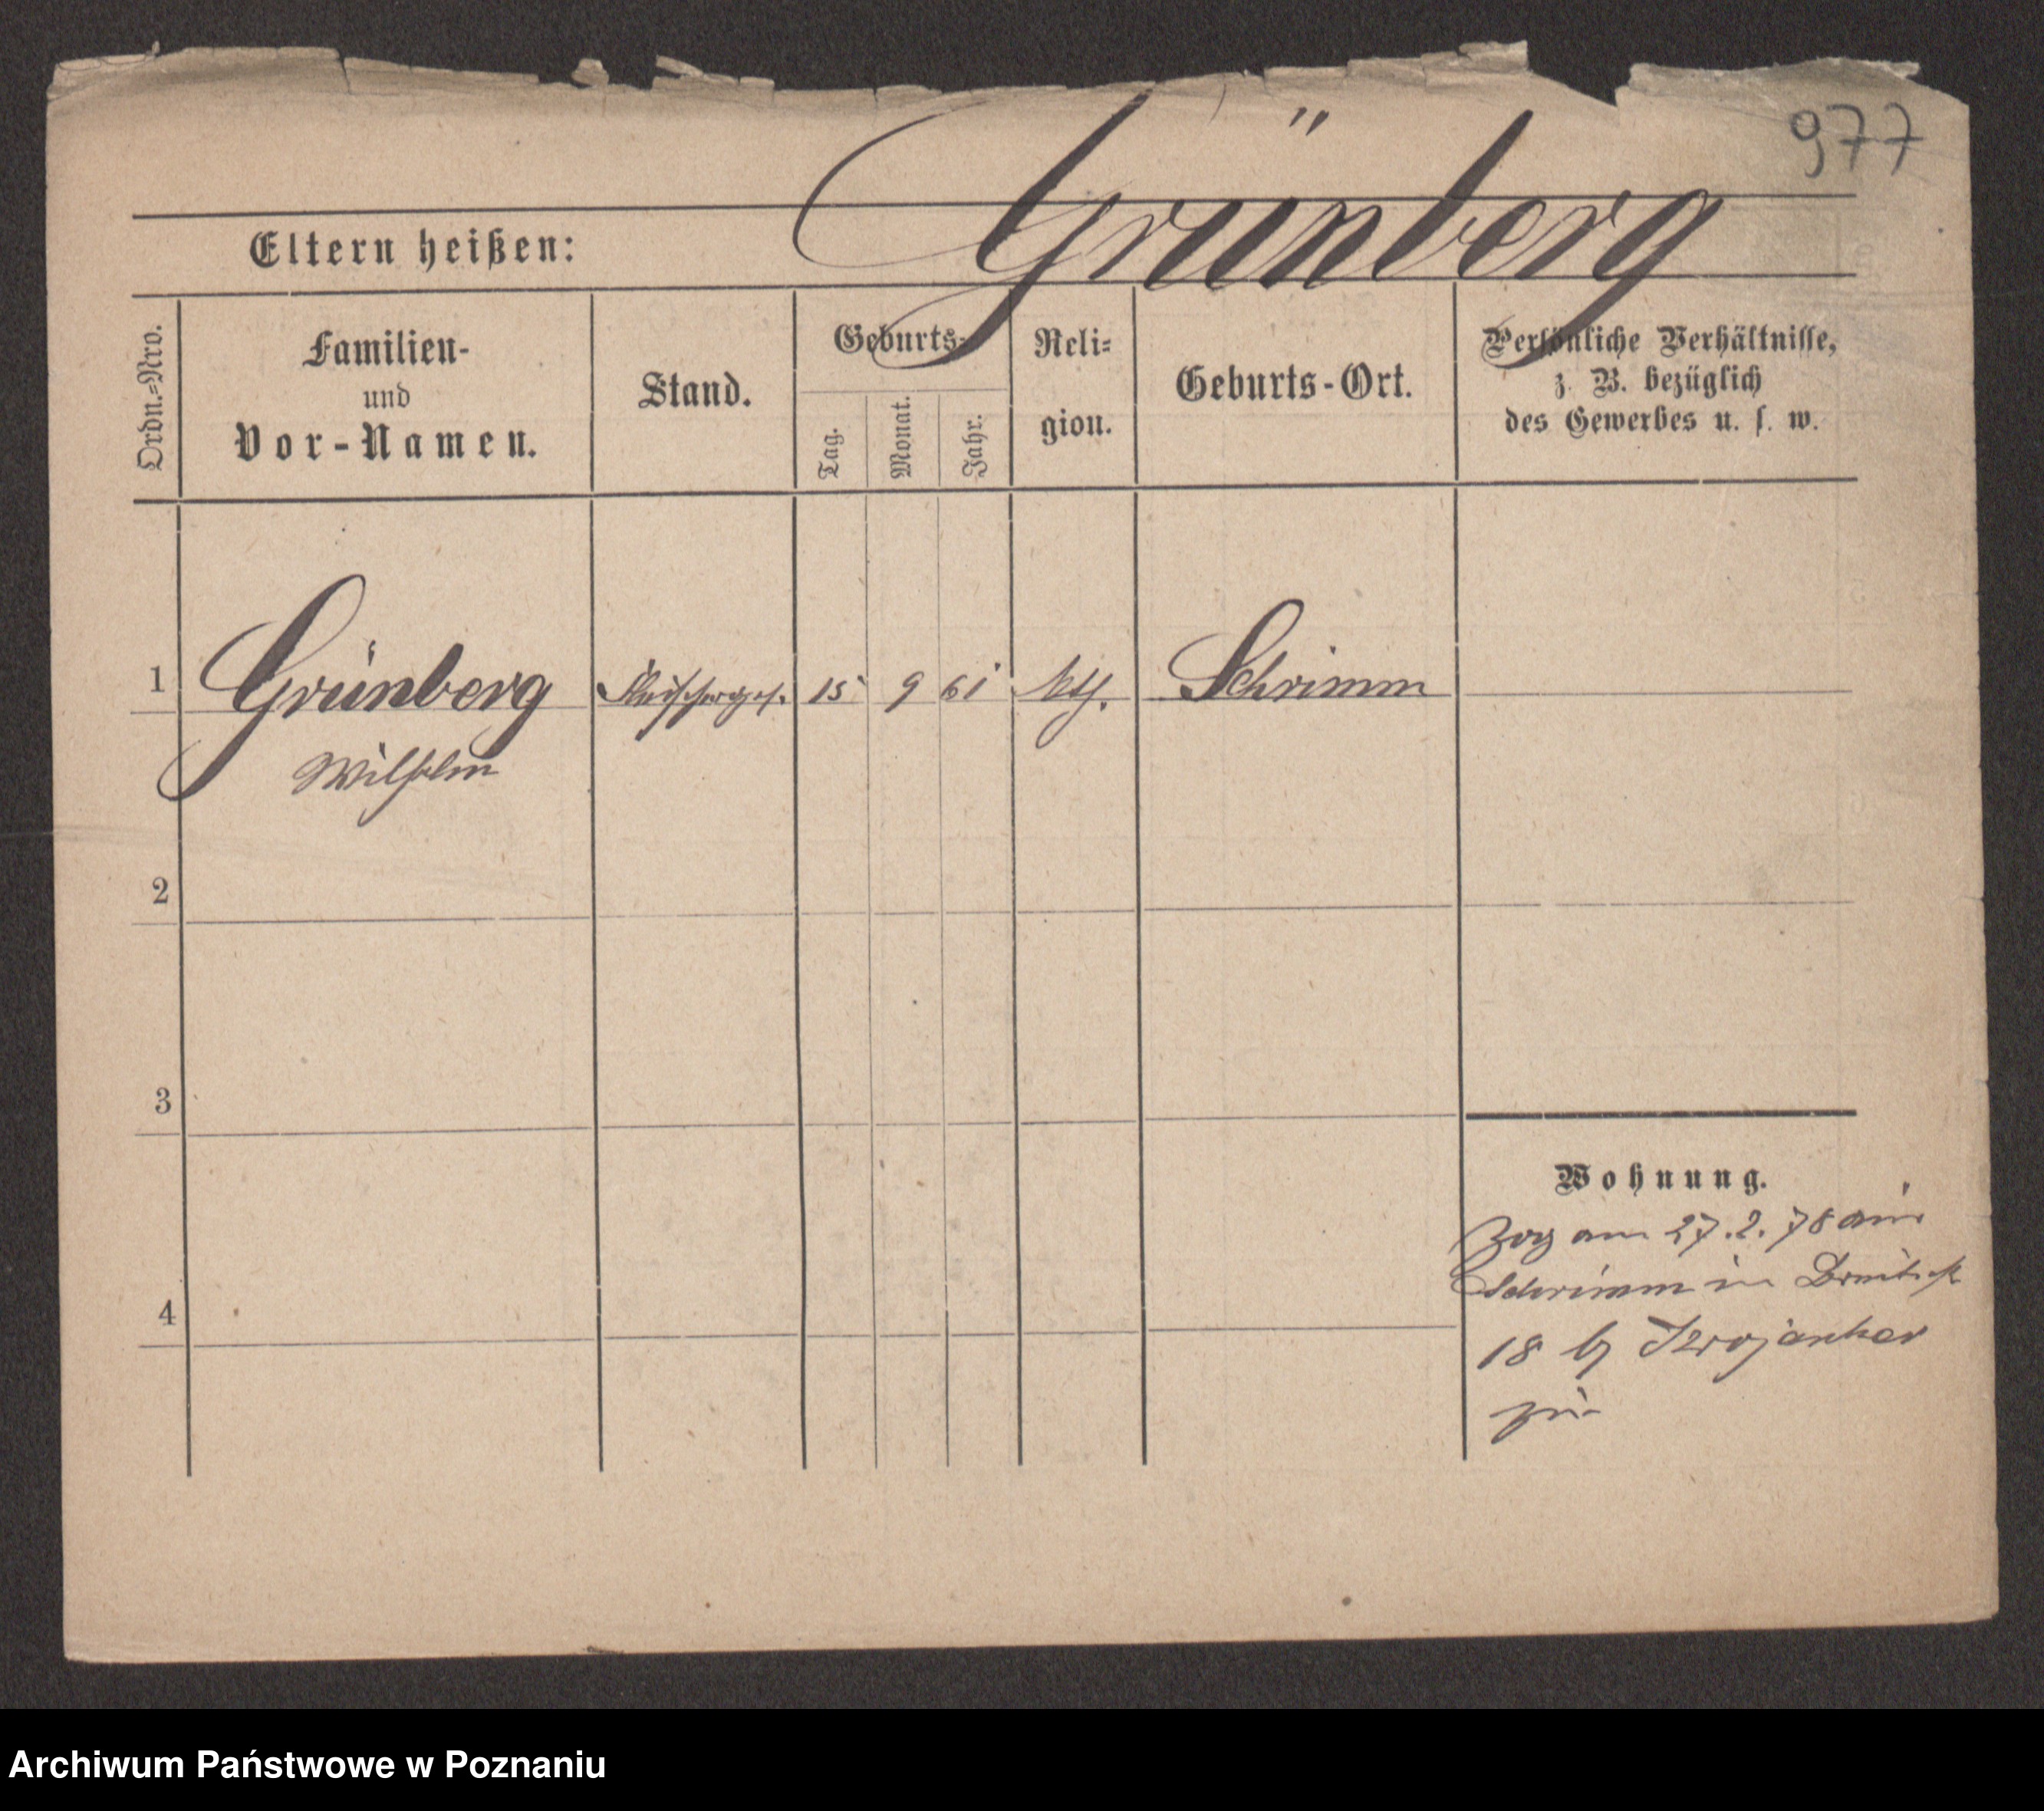 977
Grünberg
Eltern heißen:
Ordn.=Nro.
Familien-
und
Vor-Namen.
Stand.
Geburts-
Tag.
Monat.
Jahr.
Reli=
gion.
Geburts-Ort.
Persönliche Verhältnisse,
z. B. bezüglich
des Gewerbes u. s. w.
1 Grünberg Fleischerges. 15 9 61 Schrimm
Wilhelm
2
3
4
Wohnung.
Zog am 27.2.78 aus
Schrimm in Breitest
18 b/ Krojanker
zu
Archiwum Państwowe w Poznaniu